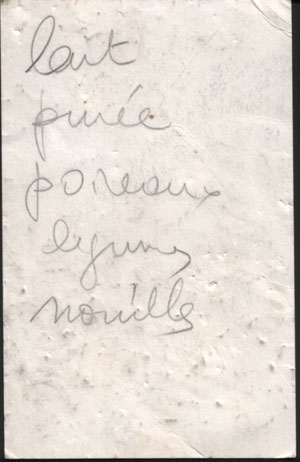 lait
purée
poireaux
légumes
nouilles